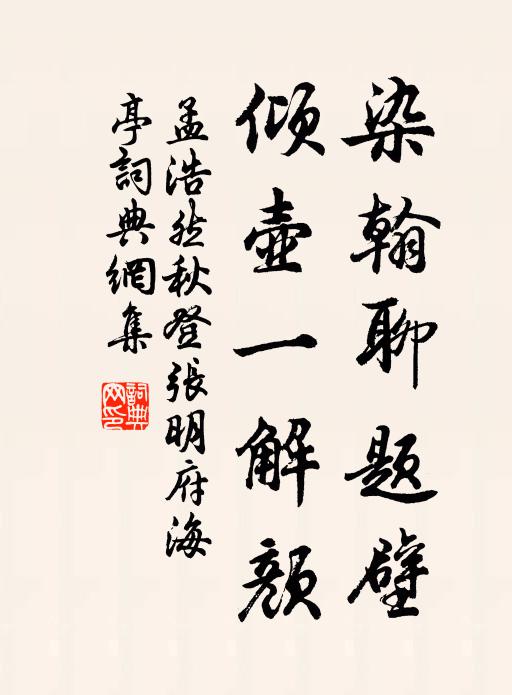 染翰聊題壁
傾壺一解顏
孟浩然秋登張明府海
亭詞典網集
詞典
網印